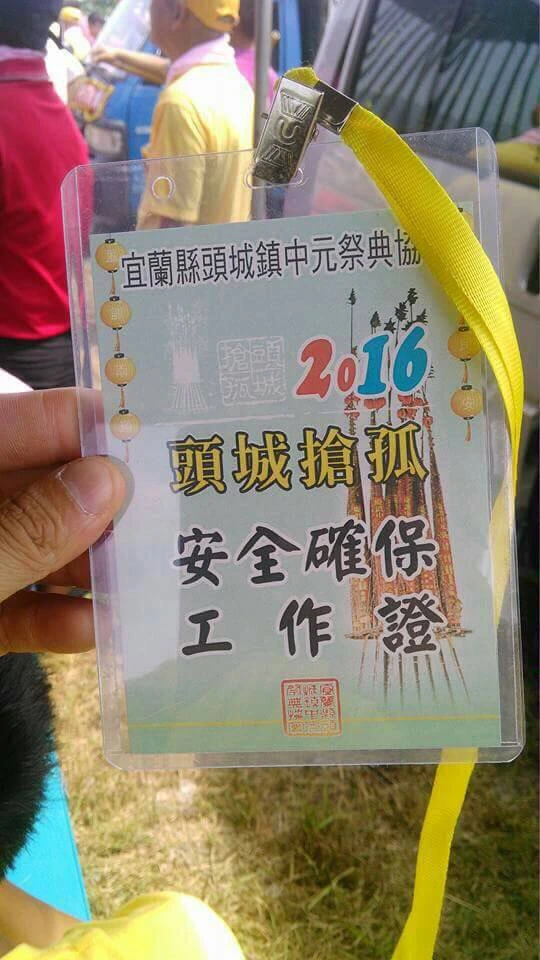 宜蘭縣頭城鎮中元祭典協
頭城
搶孤
2016
頭城搶孤
安全確保
工作證